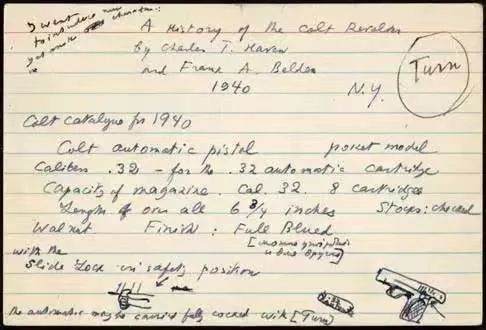 I want
to introduce
A History of the Colt Revolver
by Charles T. Haven
and Frank A. Belden
1940 N.Y.
Turn
Colt catalogue for 1940
Colt automatic pistol pocket model
Calibers .32 – for the .32 automatic cartridge
Capacity of magazine. Cal. 32. 8 cartridges
Length of over all 6 3/4 inches Stocks: checked
Walnut Finish: Full Blued
with the
Slide Lock in safety position
The automatic may be carried fully cocked with [Turn]